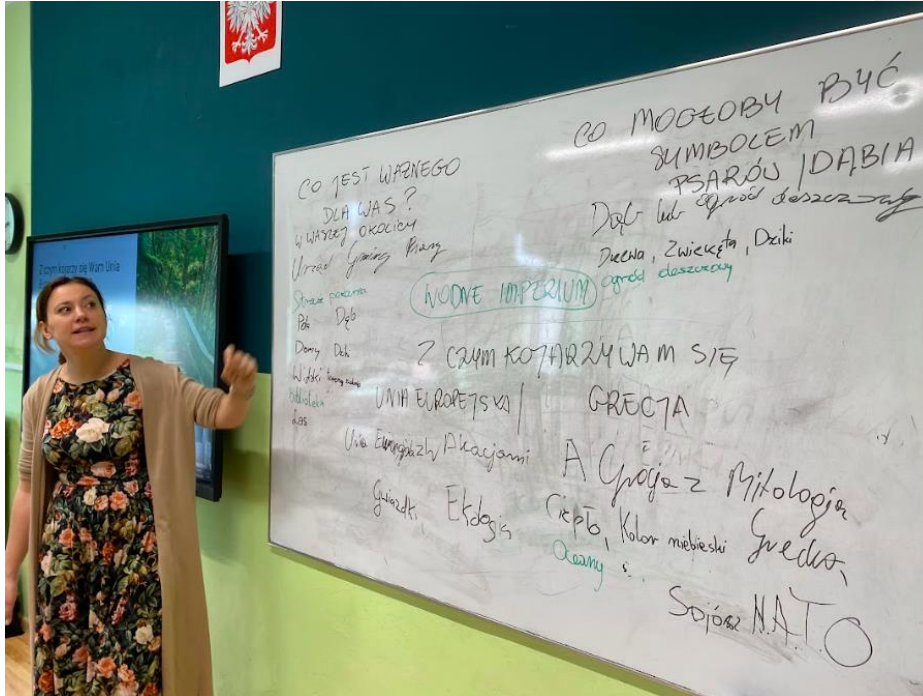 Z czym kojarzy się Wam Unia
CO JEST WAŻNEGO
DLA WAS?
W WASZEJ OKOLICY
Urząd Gminy Psary
Straż pożarna
Pola Dąb
Domy Dziki
biblioteka
Las
CO MOGŁOBY BYĆ
SYMBOLEM
PSARÓW / DĄBIA
Dąb lub ogród deszczowy
Drzewa, Zwierzęta, Dziki
ogród deszczowy
WODNE IMPERIUM
Z CZYM KOJARZY WAM SIĘ
UNIA EUROPEJSKA /
GRECJA
Unia Europejska
Gwiazdki, Ekologia
A Grecja z Mitologią
Grecką,
Ciepło, Kolor niebieski
Oceany
Sojusz N.A.T.O